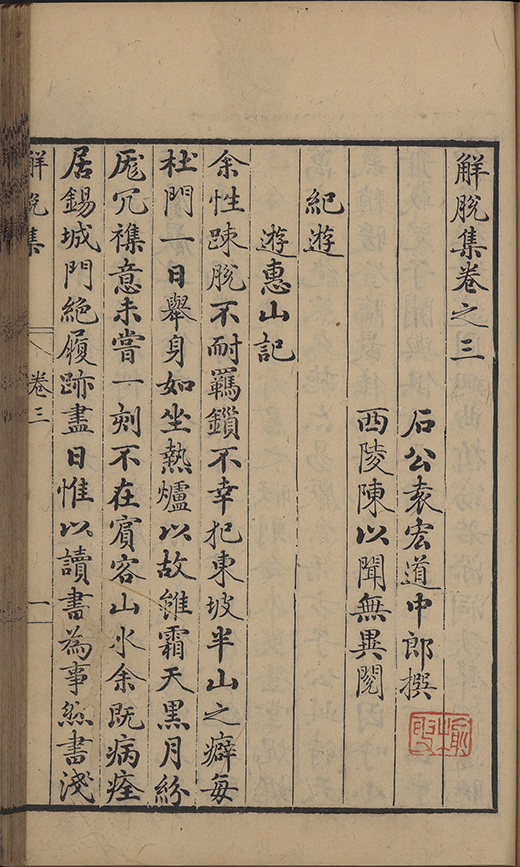 解脫集卷之三
石公袁宏道中郎撰
西陵陳以聞無異閱
紀遊
遊惠山記
余性踈脫不耐羈鎖不幸犯東坡半山之癖每
杜門一日舉身如坐熱爐以故雖霜天黑月紛
厖冗襍意未嘗一刻不在賓客山水余既病痊
居錫城門絕履跡盡日惟以讀書為事然書淺
解脫集
卷三
一